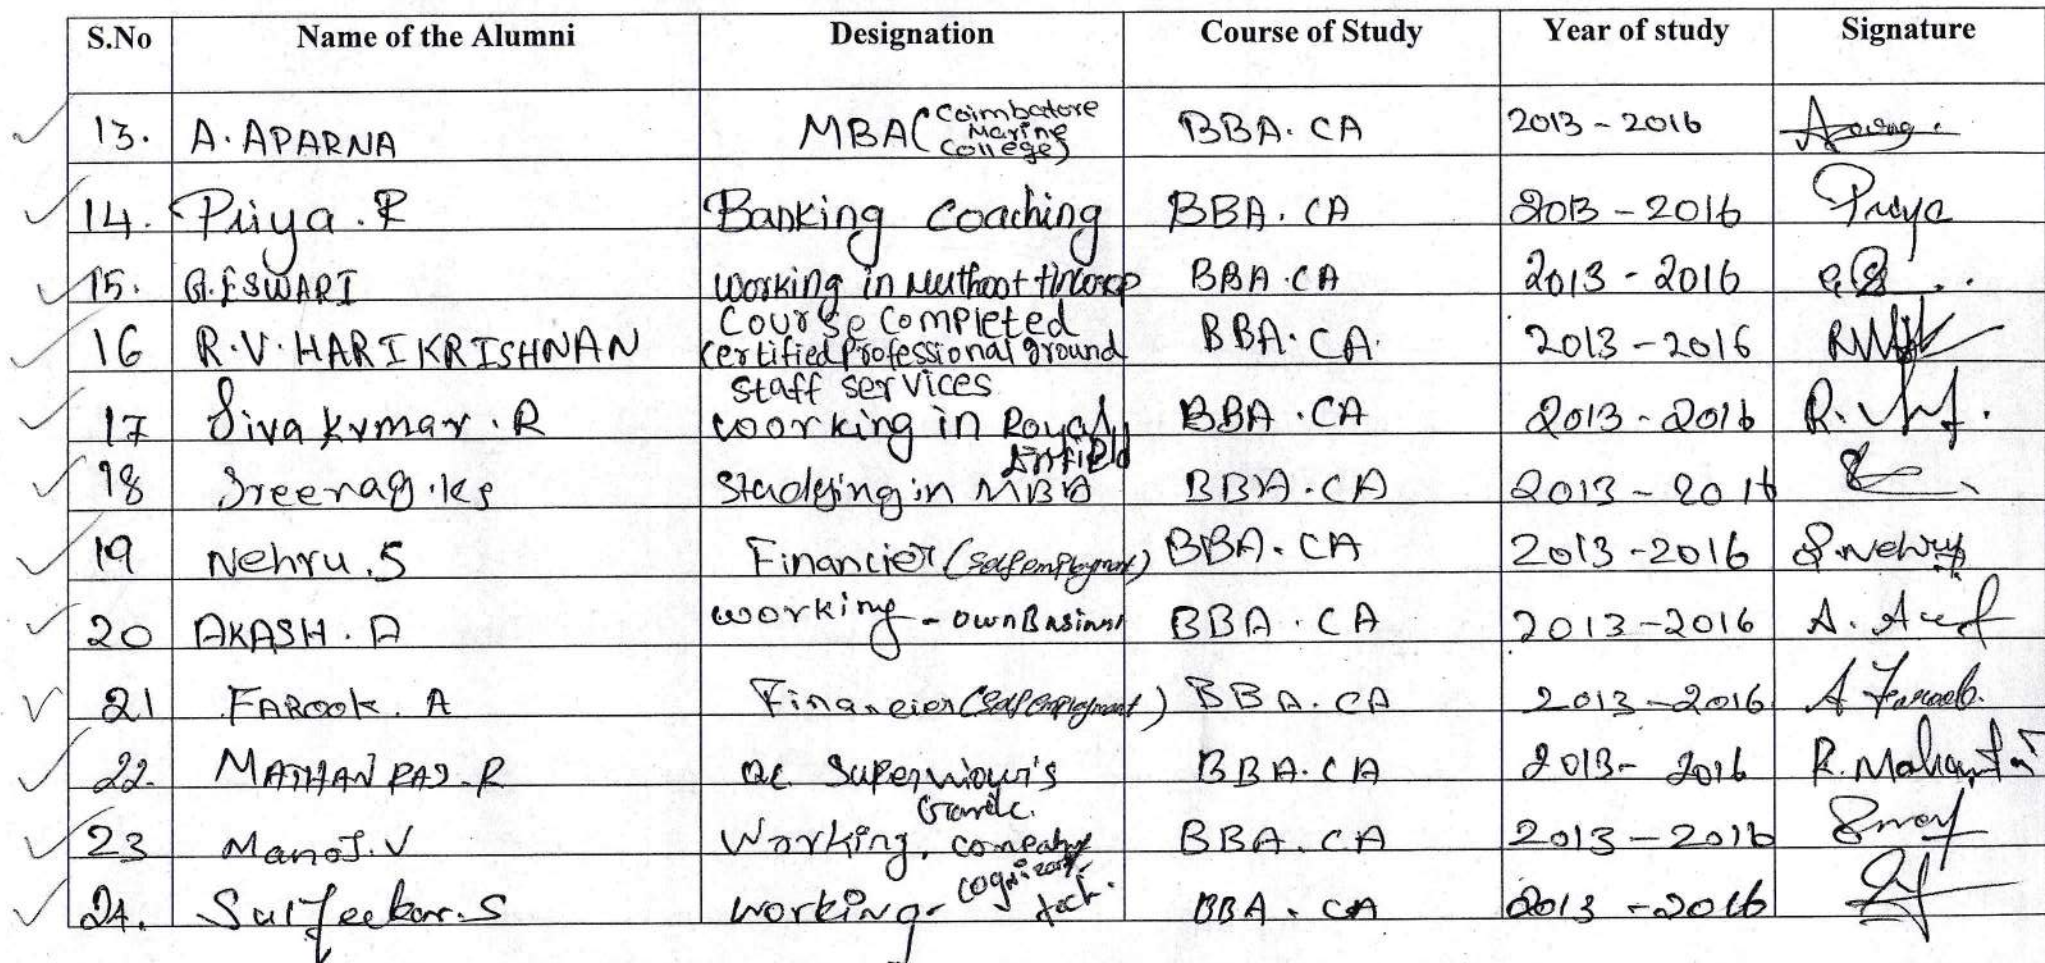 S.No Name of the Alumni Designation Course of Study Year of study Signature
13. A. APARNA MBA (Coimbatore Marine College) BBA. CA 2013 - 2016
14. Priya. R Banking Coaching BBA. CA 2013 - 2016 Priya
15. G. ESWARI Working in Muthoot fincorp BBA. CA 2013 - 2016
16 R. V. HARI KRISHNAN Course completed certified professional ground staff services BBA. CA. 2013 - 2016
17 Siva kumar. R woorking in Royal Enfield BBA. CA 2013 - 2016
18 Sreenag. ks Studying in MBA BBA. CA 2013 - 2016
19 Nehru. S Financier (Self employment) BBA. CA 2013 - 2016 S. Nehru
20 AKASH. A working - own Business BBA. CA 2013 - 2016
21 FAROOK. A Financier (Self employment) BBA. CA 2013 - 2016 A Farook.
22. MATHAN RAJ. R QC BBA. CA 2013 - 2016
23 Manoj. V Working, company BBA. CA 2013 - 2016
24. S working - tech. BBA. CA 2013 - 2016